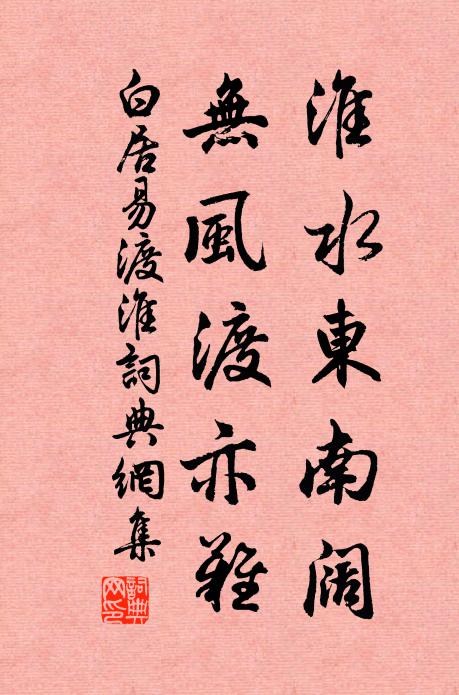 淮水東南闊
無風渡亦難
白居易渡淮詞典網集
詞典網印